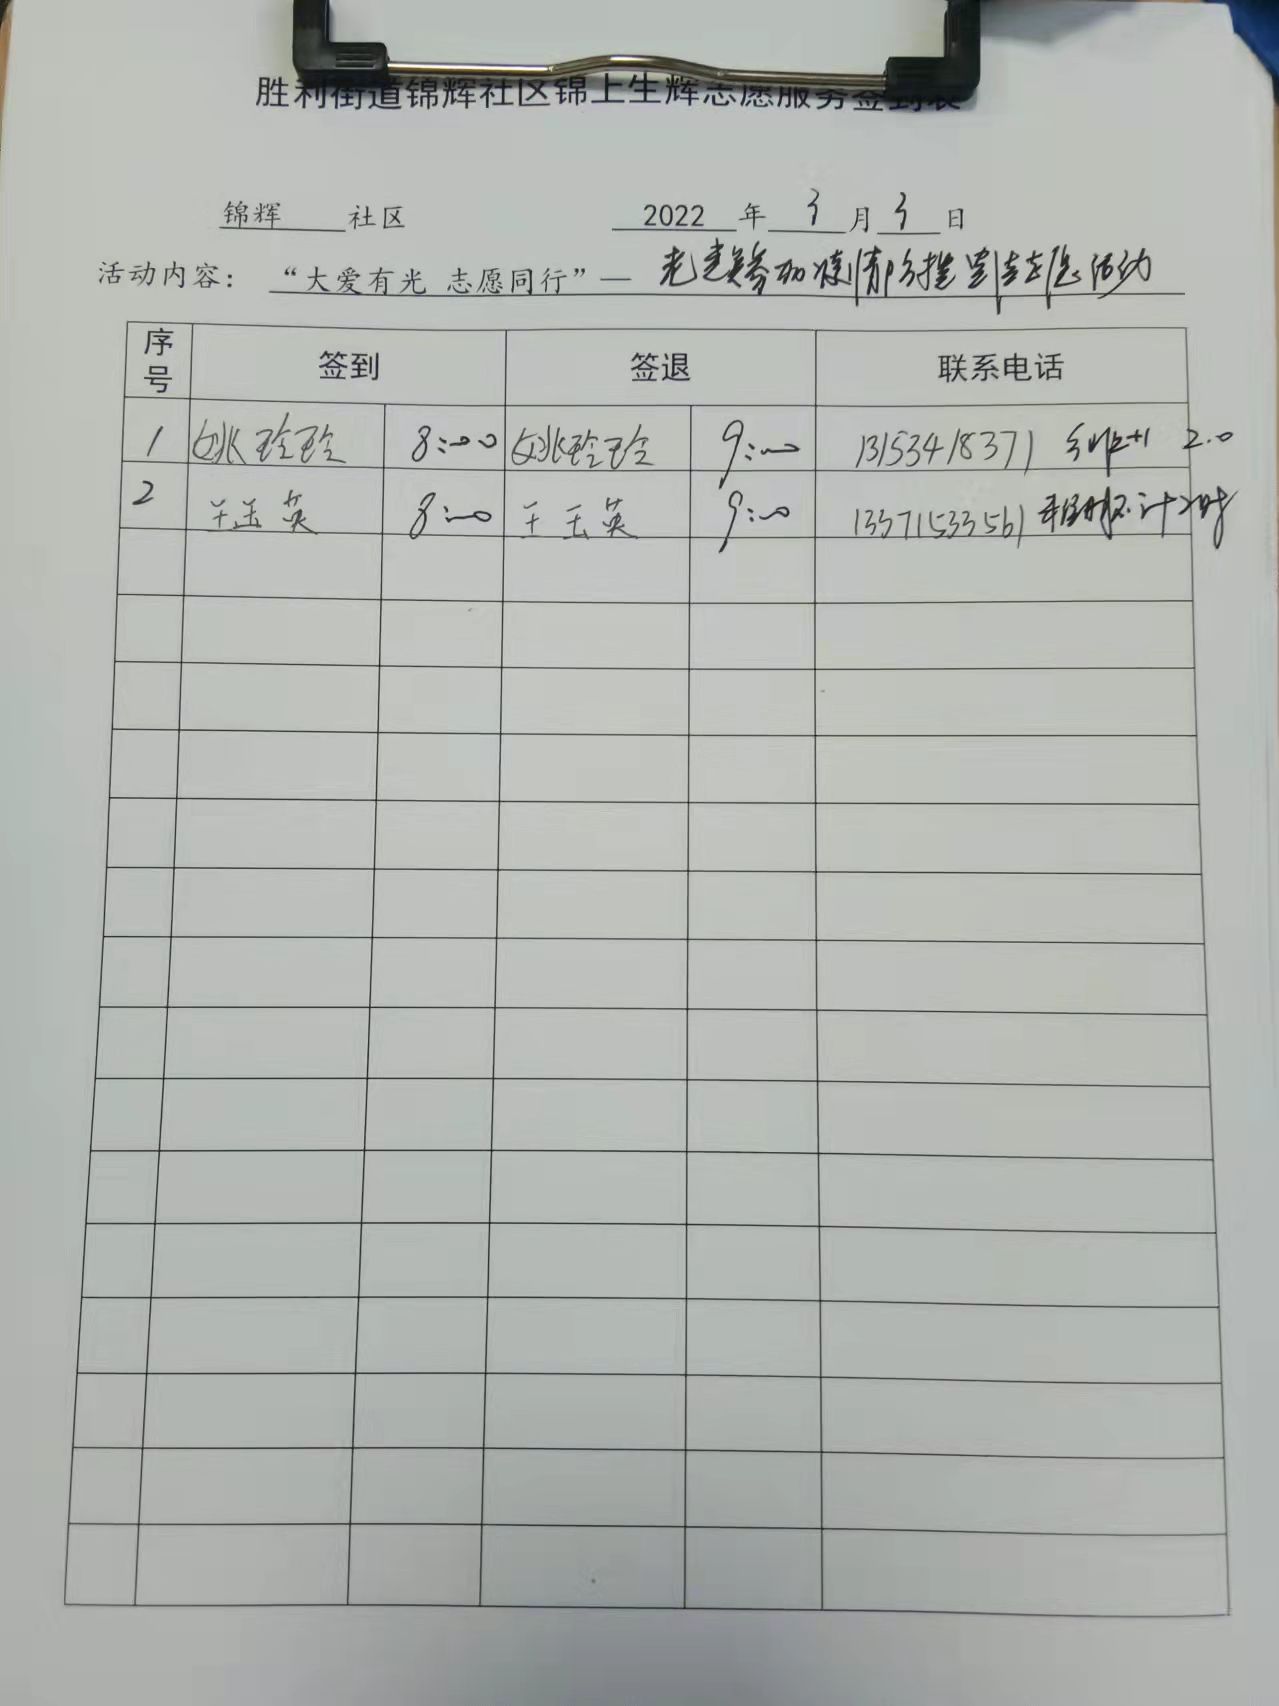 胜利街道锦辉社区锦上生辉志愿服务签到表
锦辉 社区 2022 年 3 月 3 日
活动内容： “大爱有光 志愿同行”— 志愿活动
序号 签到 签退 联系电话
1 姚玲玲 8:00 姚玲玲 9:00 13153418371 2.0
2 王玉英 8:00 王玉英 9:00 13371533561